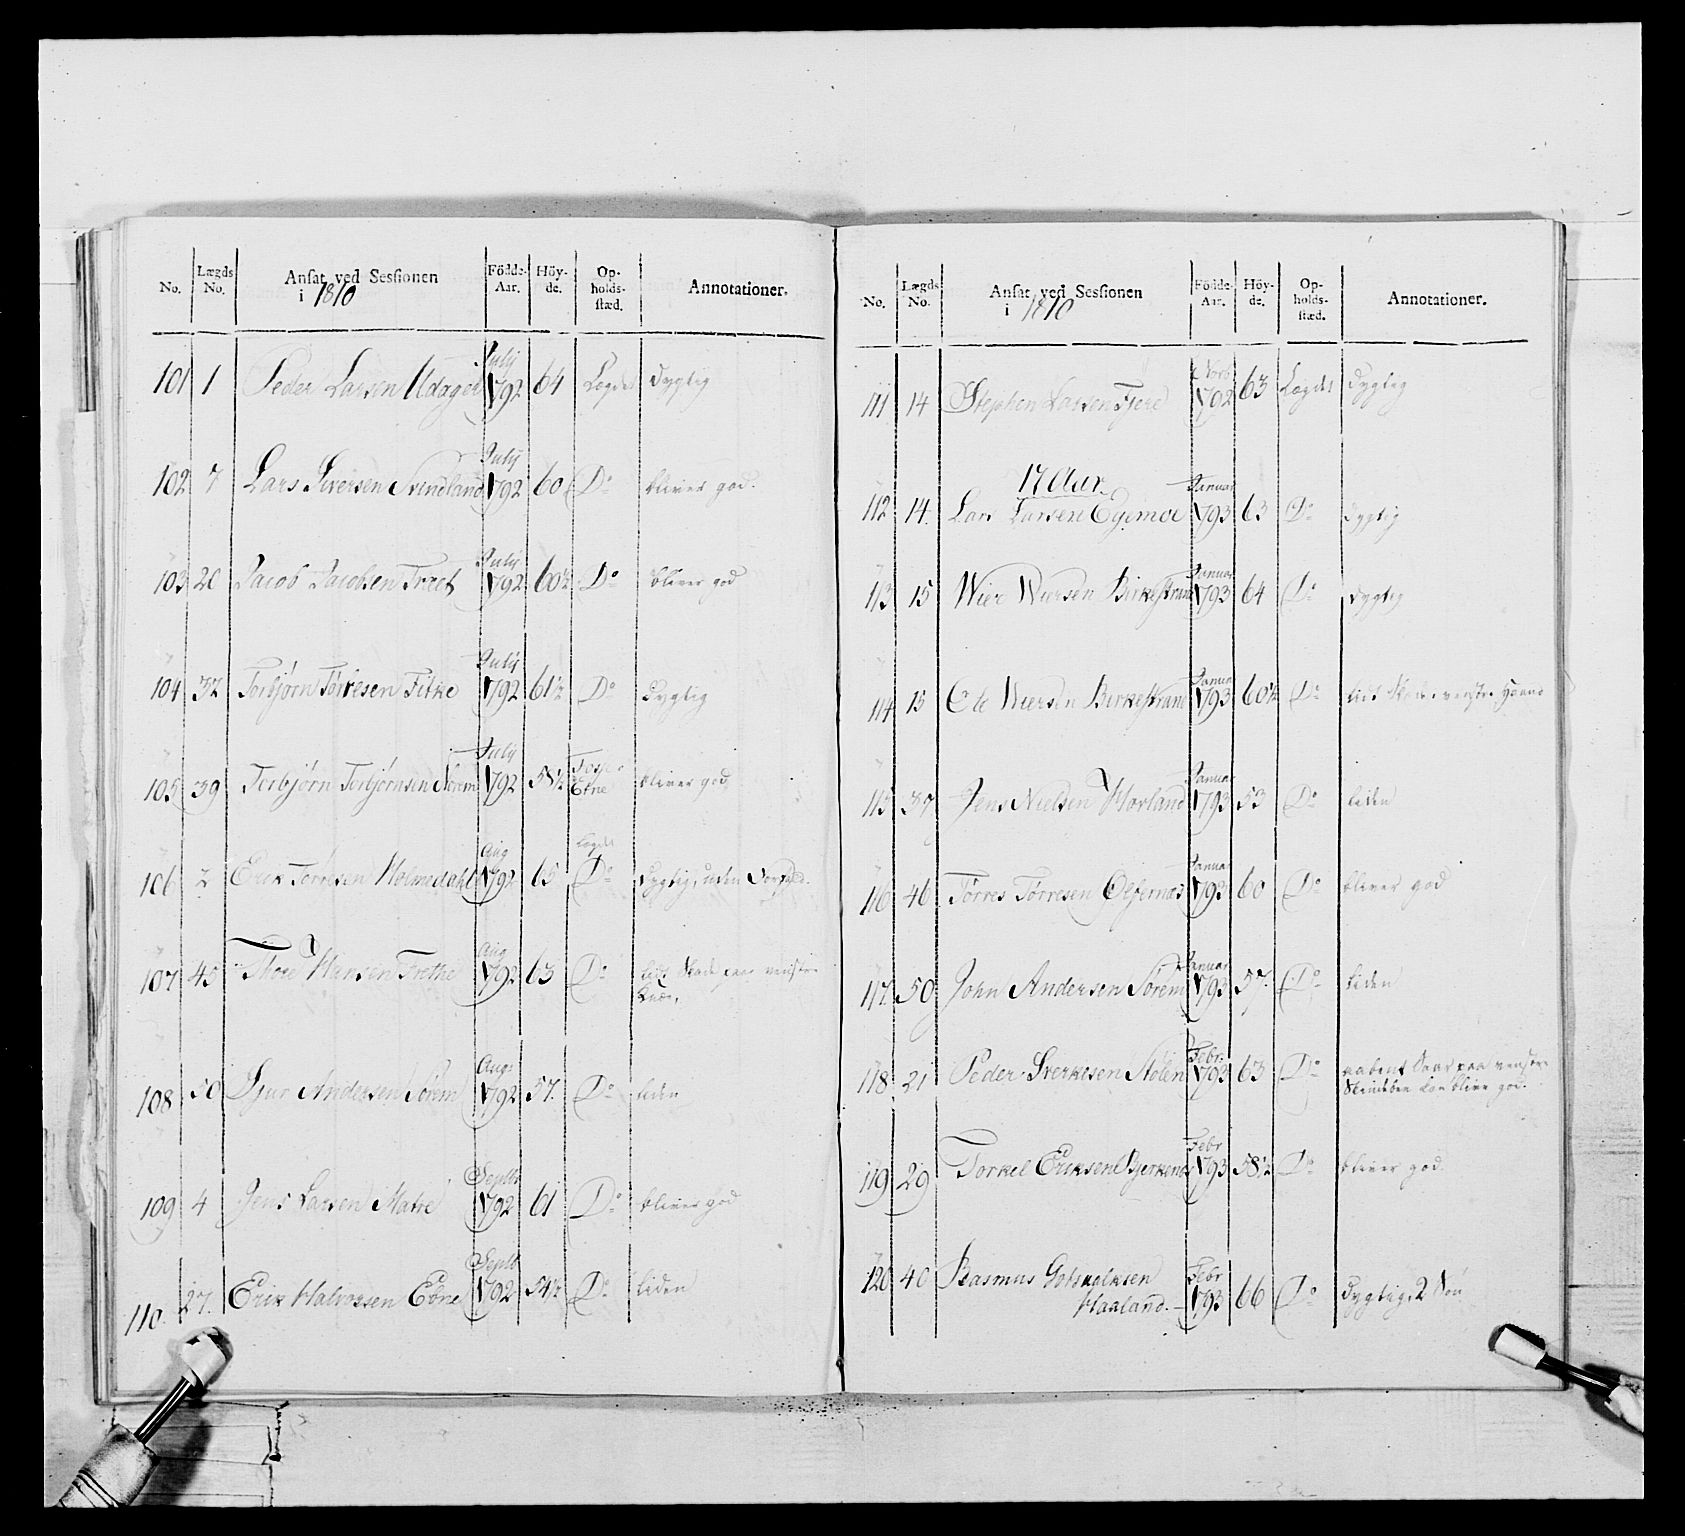 No. Lægds No. Ansat ved Sessionen i 1810 Födde-Aar. Höy-de. Op-holds-stæd. Annotationer.
101 1 Peder Larsen Udager July 1792 64 Lægdet Dygtig
102 7 Lars Siversen Svindland July 1792 60 Do bliver god.
103 20 Jacob Jacobsen Træet July 1792 60½ Do bliver god
104 32 Torbjørn Tørresen Fitke July 1792 61½ Do Dygtig
105 39 Torbjørn Torbjørnsen Sørem July 1792 58½ Etne bliver god
Lægdet
106 2 Erik Tørresen Holmedahl Aug 1792 65 Do Dygtig, uden
107 45 Thore Hansen Frette Aug 1792 63 Do lidt Skade paa venstre
Knæe,
108 50 Sjur Andersen Sørem Aug: 1792 57. Do liden
109 4 Jens Larsen Matre Septb 1792 61 Do bliver god
110. 27. Erik Halvorsen Ebne Septb 1792 54½ Do liden
No. Lægds No. Ansat ved Sessionen i 1810 Födde-Aar. Höy-de. Op-holds-stæd. Annotationer.
111 14 Stephen Larsen Fjere Novb 1792 63 Lægdet Dygtig
17 Aar.
112 14. Lars Larsen Egemoe Januar 1793 63 Do Dygtig
113 15 Wier Wiersen Birkestrand Januar 1793 64 Do Dygtig
114 15 Ole Wiersen Birkestrand Januar 1793 60½ Do lidt Skade venstre Haand
115 37 Jens Nielsen Hovland Januar 1793 53 Do liden
116 46 Tørres Tørresen Ølfernæs Januar 1793 60 Do bliver god
117. 50 John Andersen Sørem Januar 1793 57. Do liden
118 21 Peder Sverkesen Stølen Febr: 1793 63 Do aabent Saar paa venstre
Skinnebeen kan blive god.
119 29 Torkel Eriksen Bjerkenes Febr 1793 58½ Do bliver god
120 40 Rasmus Gotskalksen
Haaland. Febr 1793 66 Do Dygtig, 2 Søn